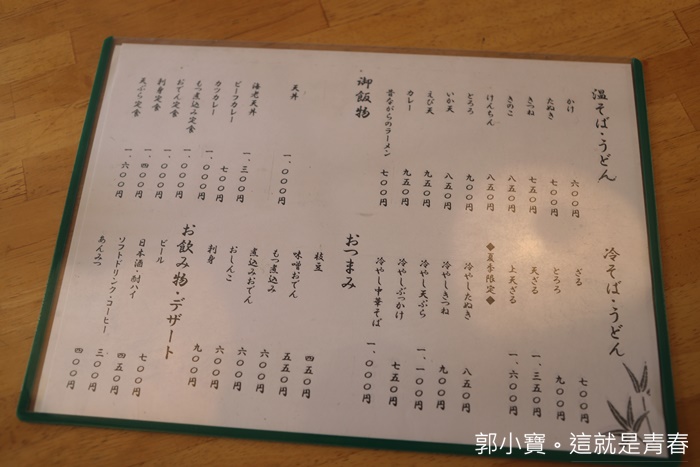 温そば・うどん
かけ 六〇〇円
たぬき 七〇〇円
きつね 七五〇円
きのこ 八五〇円
けんちん 八五〇円
とろろ 七〇〇円
いか天 八五〇円
えび天 九五〇円
カレー 九五〇円
昔ながらのラーメン 七〇〇円
御飯物
天丼 一、〇〇〇円
海老天丼 一、三〇〇円
ビーフカレー 七〇〇円
カツカレー 一、〇〇〇円
もつ煮込み定食 一、〇〇〇円
おでん定食 一、〇〇〇円
刺身定食 一、四〇〇円
天ぷら定食 一、六〇〇円
冷そば・うどん
ざる 七〇〇円
とろろ 九〇〇円
天ざる 一、三五〇円
上天ざる 一、六〇〇円
◆夏季限定◆
冷やしたぬき 八五〇円
冷やしきつね 九〇〇円
冷やし天ぷら 一、一〇〇円
冷やしぶっかけ 七五〇円
冷やし中華そば 一、〇〇〇円
おつまみ
枝豆 四五〇円
味噌おでん 五五〇円
もつ煮込み 六〇〇円
煮込みおでん 六〇〇円
おしんこ 六〇〇円
刺身 九〇〇円
お飲み物・デザート
ビール 七〇〇円
日本酒・酎ハイ 四五〇円
ソフトドリンク・コーヒー 三〇〇円
あんみつ 四〇〇円
郭小寶。這就是青春